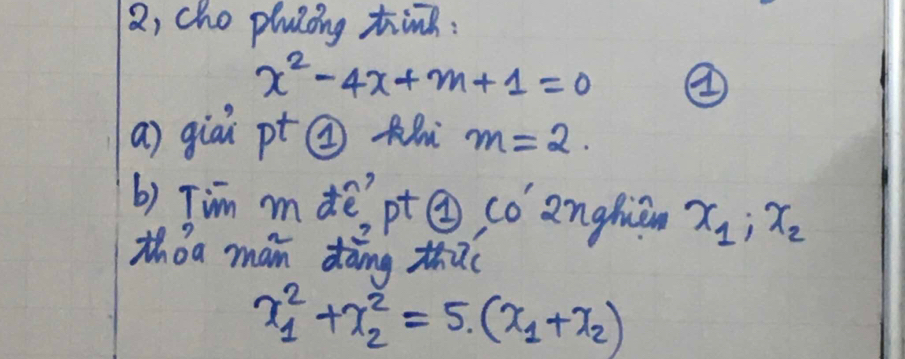 2, cho phương trình:
x² - 4x + m + 1 = 0 ①
a) giải pt ① khi m = 2.
b) Tìm m để pt ① có 2 nghiệm x₁; x₂
thỏa mãn đẳng thức
x₁² + x₂² = 5.(x₁ + x₂)